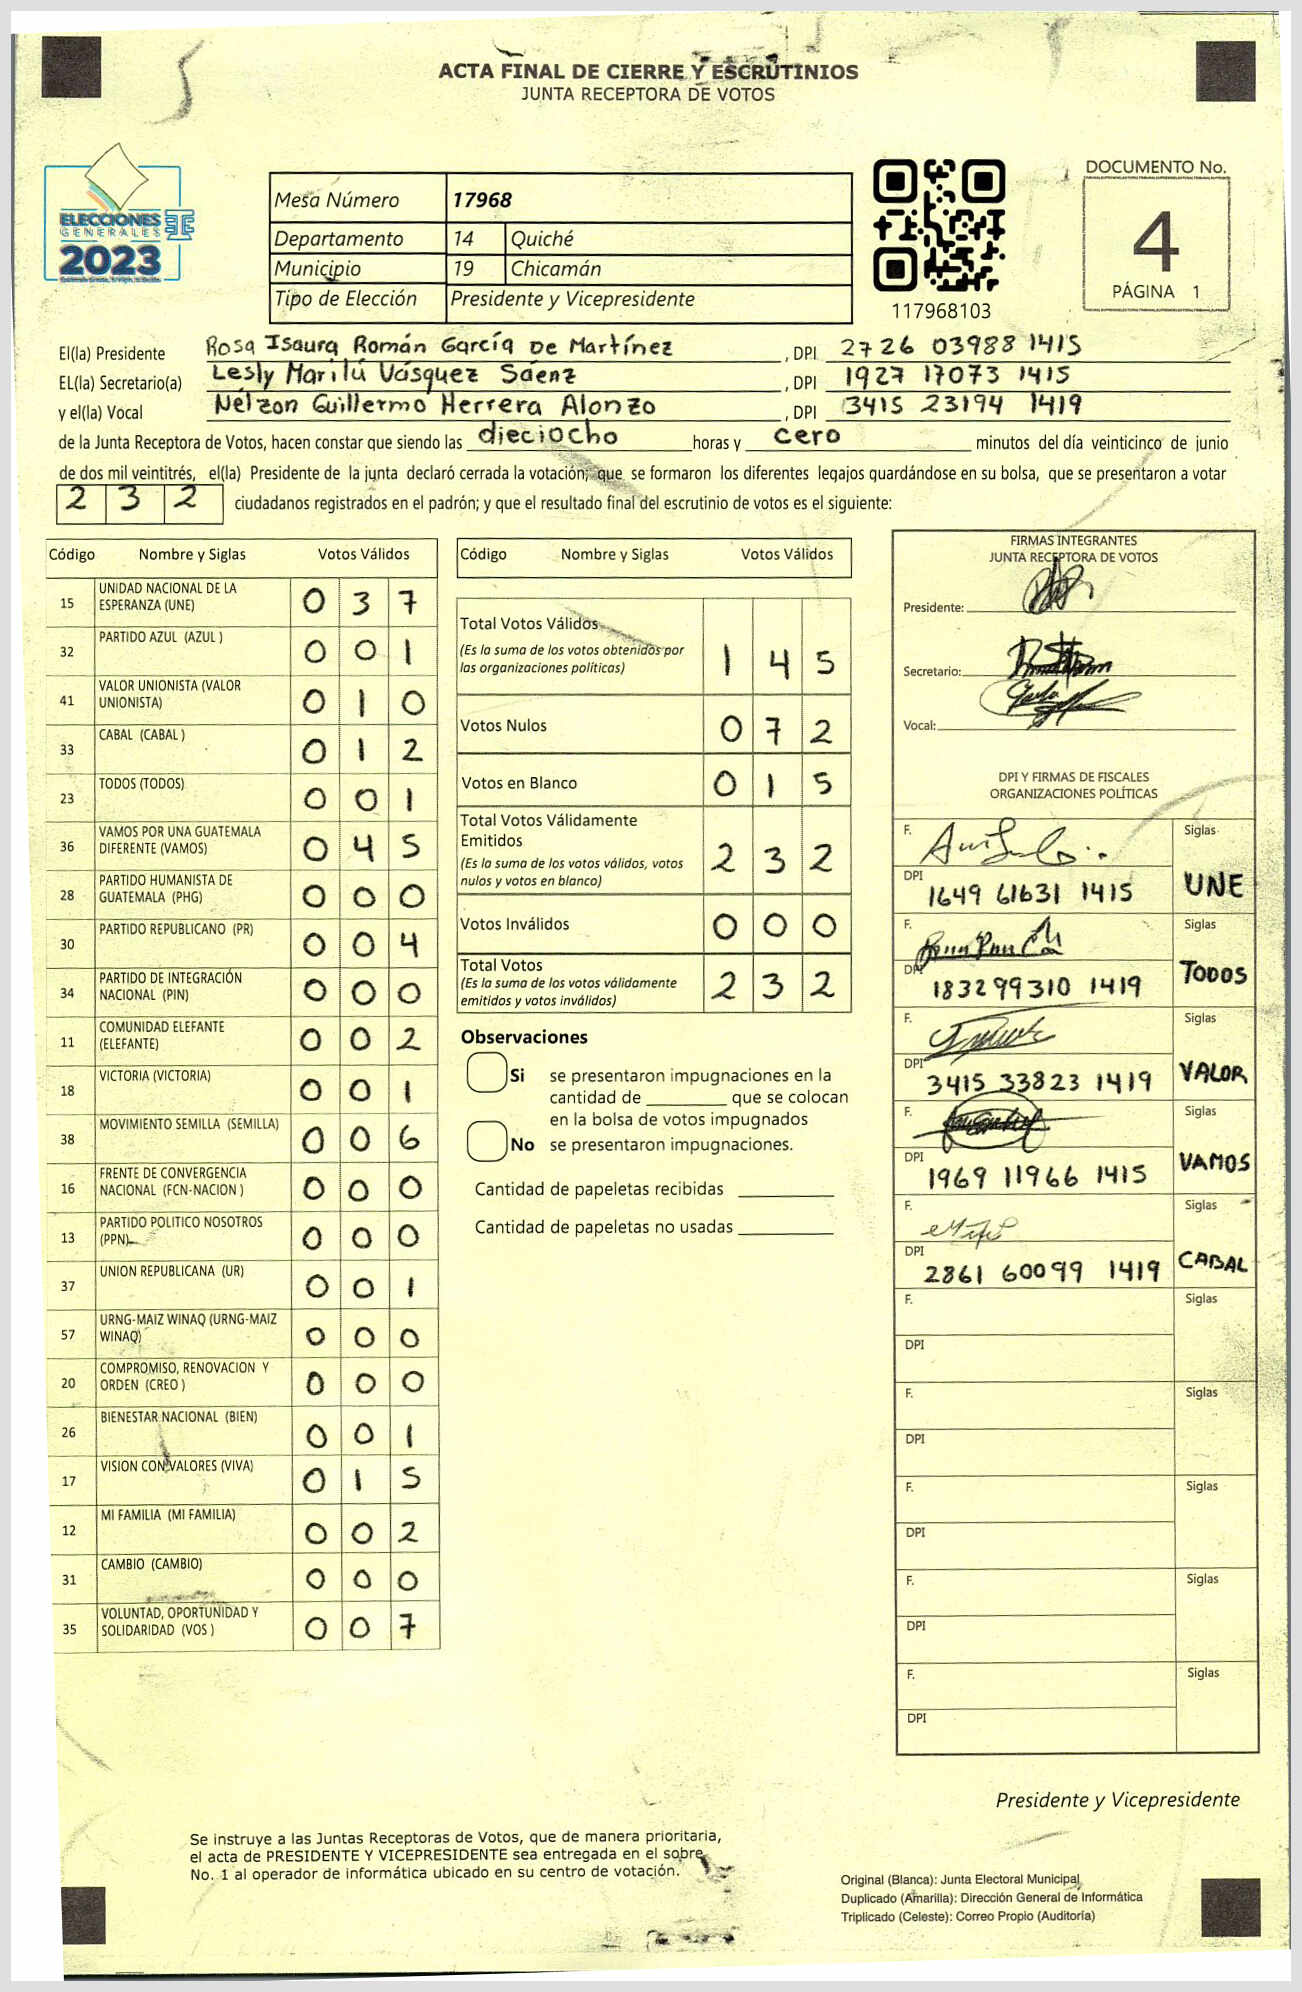 ACTA FINAL DE CIERRE Y ESCRUTINIOS
JUNTA RECEPTORA DE VOTOS
ELECCIONES
GENERALES
2023
Mesa Número 17968
Departamento 14 Quiché
Municipio 19 Chicamán
Tipo de Elección Presidente y Vicepresidente
117968103
DOCUMENTO No.
4
PÁGINA 1
El(la) Presidente Rosa Isaura Román García De Martínez , DPI 2726 03988 1415
EL(la) Secretario(a) Lesly Marilú Vásquez Sáenz , DPI 1927 17073 1415
y el(la) Vocal Nélzon Guillermo Herrera Alonzo , DPI 3415 23194 1419
de la Junta Receptora de Votos, hacen constar que siendo las dieciocho horas y cero minutos del día veinticinco de junio
de dos mil veintitrés, el(la) Presidente de la junta declaró cerrada la votación; que se formaron los diferentes legajos guardándose en su bolsa, que se presentaron a votar
2 3 2 ciudadanos registrados en el padrón; y que el resultado final del escrutinio de votos es el siguiente:
Código Nombre y Siglas Votos Válidos
15 UNIDAD NACIONAL DE LA
ESPERANZA (UNE) 0 3 7
32 PARTIDO AZUL (AZUL ) 0 0 1
41 VALOR UNIONISTA (VALOR
UNIONISTA) 0 1 0
33 CABAL (CABAL ) 0 1 2
23 TODOS (TODOS) 0 0 1
36 VAMOS POR UNA GUATEMALA
DIFERENTE (VAMOS) 0 4 5
28 PARTIDO HUMANISTA DE
GUATEMALA (PHG) 0 0 0
30 PARTIDO REPUBLICANO (PR) 0 0 4
34 PARTIDO DE INTEGRACIÓN
NACIONAL (PIN) 0 0 0
11 COMUNIDAD ELEFANTE
(ELEFANTE) 0 0 2
18 VICTORIA (VICTORIA) 0 0 1
38 MOVIMIENTO SEMILLA (SEMILLA) 0 0 6
16 FRENTE DE CONVERGENCIA
NACIONAL (FCN-NACION ) 0 0 0
13 PARTIDO POLITICO NOSOTROS
(PPN) 0 0 0
37 UNION REPUBLICANA (UR) 0 0 1
57 URNG-MAIZ WINAQ (URNG-MAIZ
WINAQ) 0 0 0
20 COMPROMISO, RENOVACION Y
ORDEN (CREO ) 0 0 0
26 BIENESTAR NACIONAL (BIEN) 0 0 1
17 VISION CON VALORES (VIVA) 0 1 5
12 MI FAMILIA (MI FAMILIA) 0 0 2
31 CAMBIO (CAMBIO) 0 0 0
35 VOLUNTAD, OPORTUNIDAD Y
SOLIDARIDAD (VOS ) 0 0 7
Código Nombre y Siglas Votos Válidos
Total Votos Válidos
(Es la suma de los votos obtenidos por
las organizaciones políticas) 1 4 5
Votos Nulos 0 7 2
Votos en Blanco 0 1 5
Total Votos Válidamente
Emitidos
(Es la suma de los votos válidos, votos
nulos y votos en blanco) 2 3 2
Votos Inválidos 0 0 0
Total Votos
(Es la suma de los votos válidamente
emitidos y votos inválidos) 2 3 2
Observaciones
Si se presentaron impugnaciones en la
cantidad de ________ que se colocan
en la bolsa de votos impugnados
No se presentaron impugnaciones.
Cantidad de papeletas recibidas ________
Cantidad de papeletas no usadas ________
FIRMAS INTEGRANTES
JUNTA RECEPTORA DE VOTOS
Presidente:
Secretario:
Vocal:
DPI Y FIRMAS DE FISCALES
ORGANIZACIONES POLÍTICAS
F. Siglas
DPI 1649 61631 1415 UNE
F. Siglas
DPI 1832 99310 1419 TODOS
F. Siglas
DPI 3415 33823 1419 VALOR
F. Siglas
DPI 1969 11966 1415 VAMOS
F. Siglas
DPI 2861 60099 1419 CABAL
F. Siglas
DPI
F. Siglas
DPI
F. Siglas
DPI
F. Siglas
DPI
F. Siglas
DPI
Presidente y Vicepresidente
Se instruye a las Juntas Receptoras de Votos, que de manera prioritaria,
el acta de PRESIDENTE Y VICEPRESIDENTE sea entregada en el sobre
No. 1 al operador de informática ubicado en su centro de votación.
Original (Blanca): Junta Electoral Municipal
Duplicado (Amarilla): Dirección General de Informática
Triplicado (Celeste): Correo Propio (Auditoría)